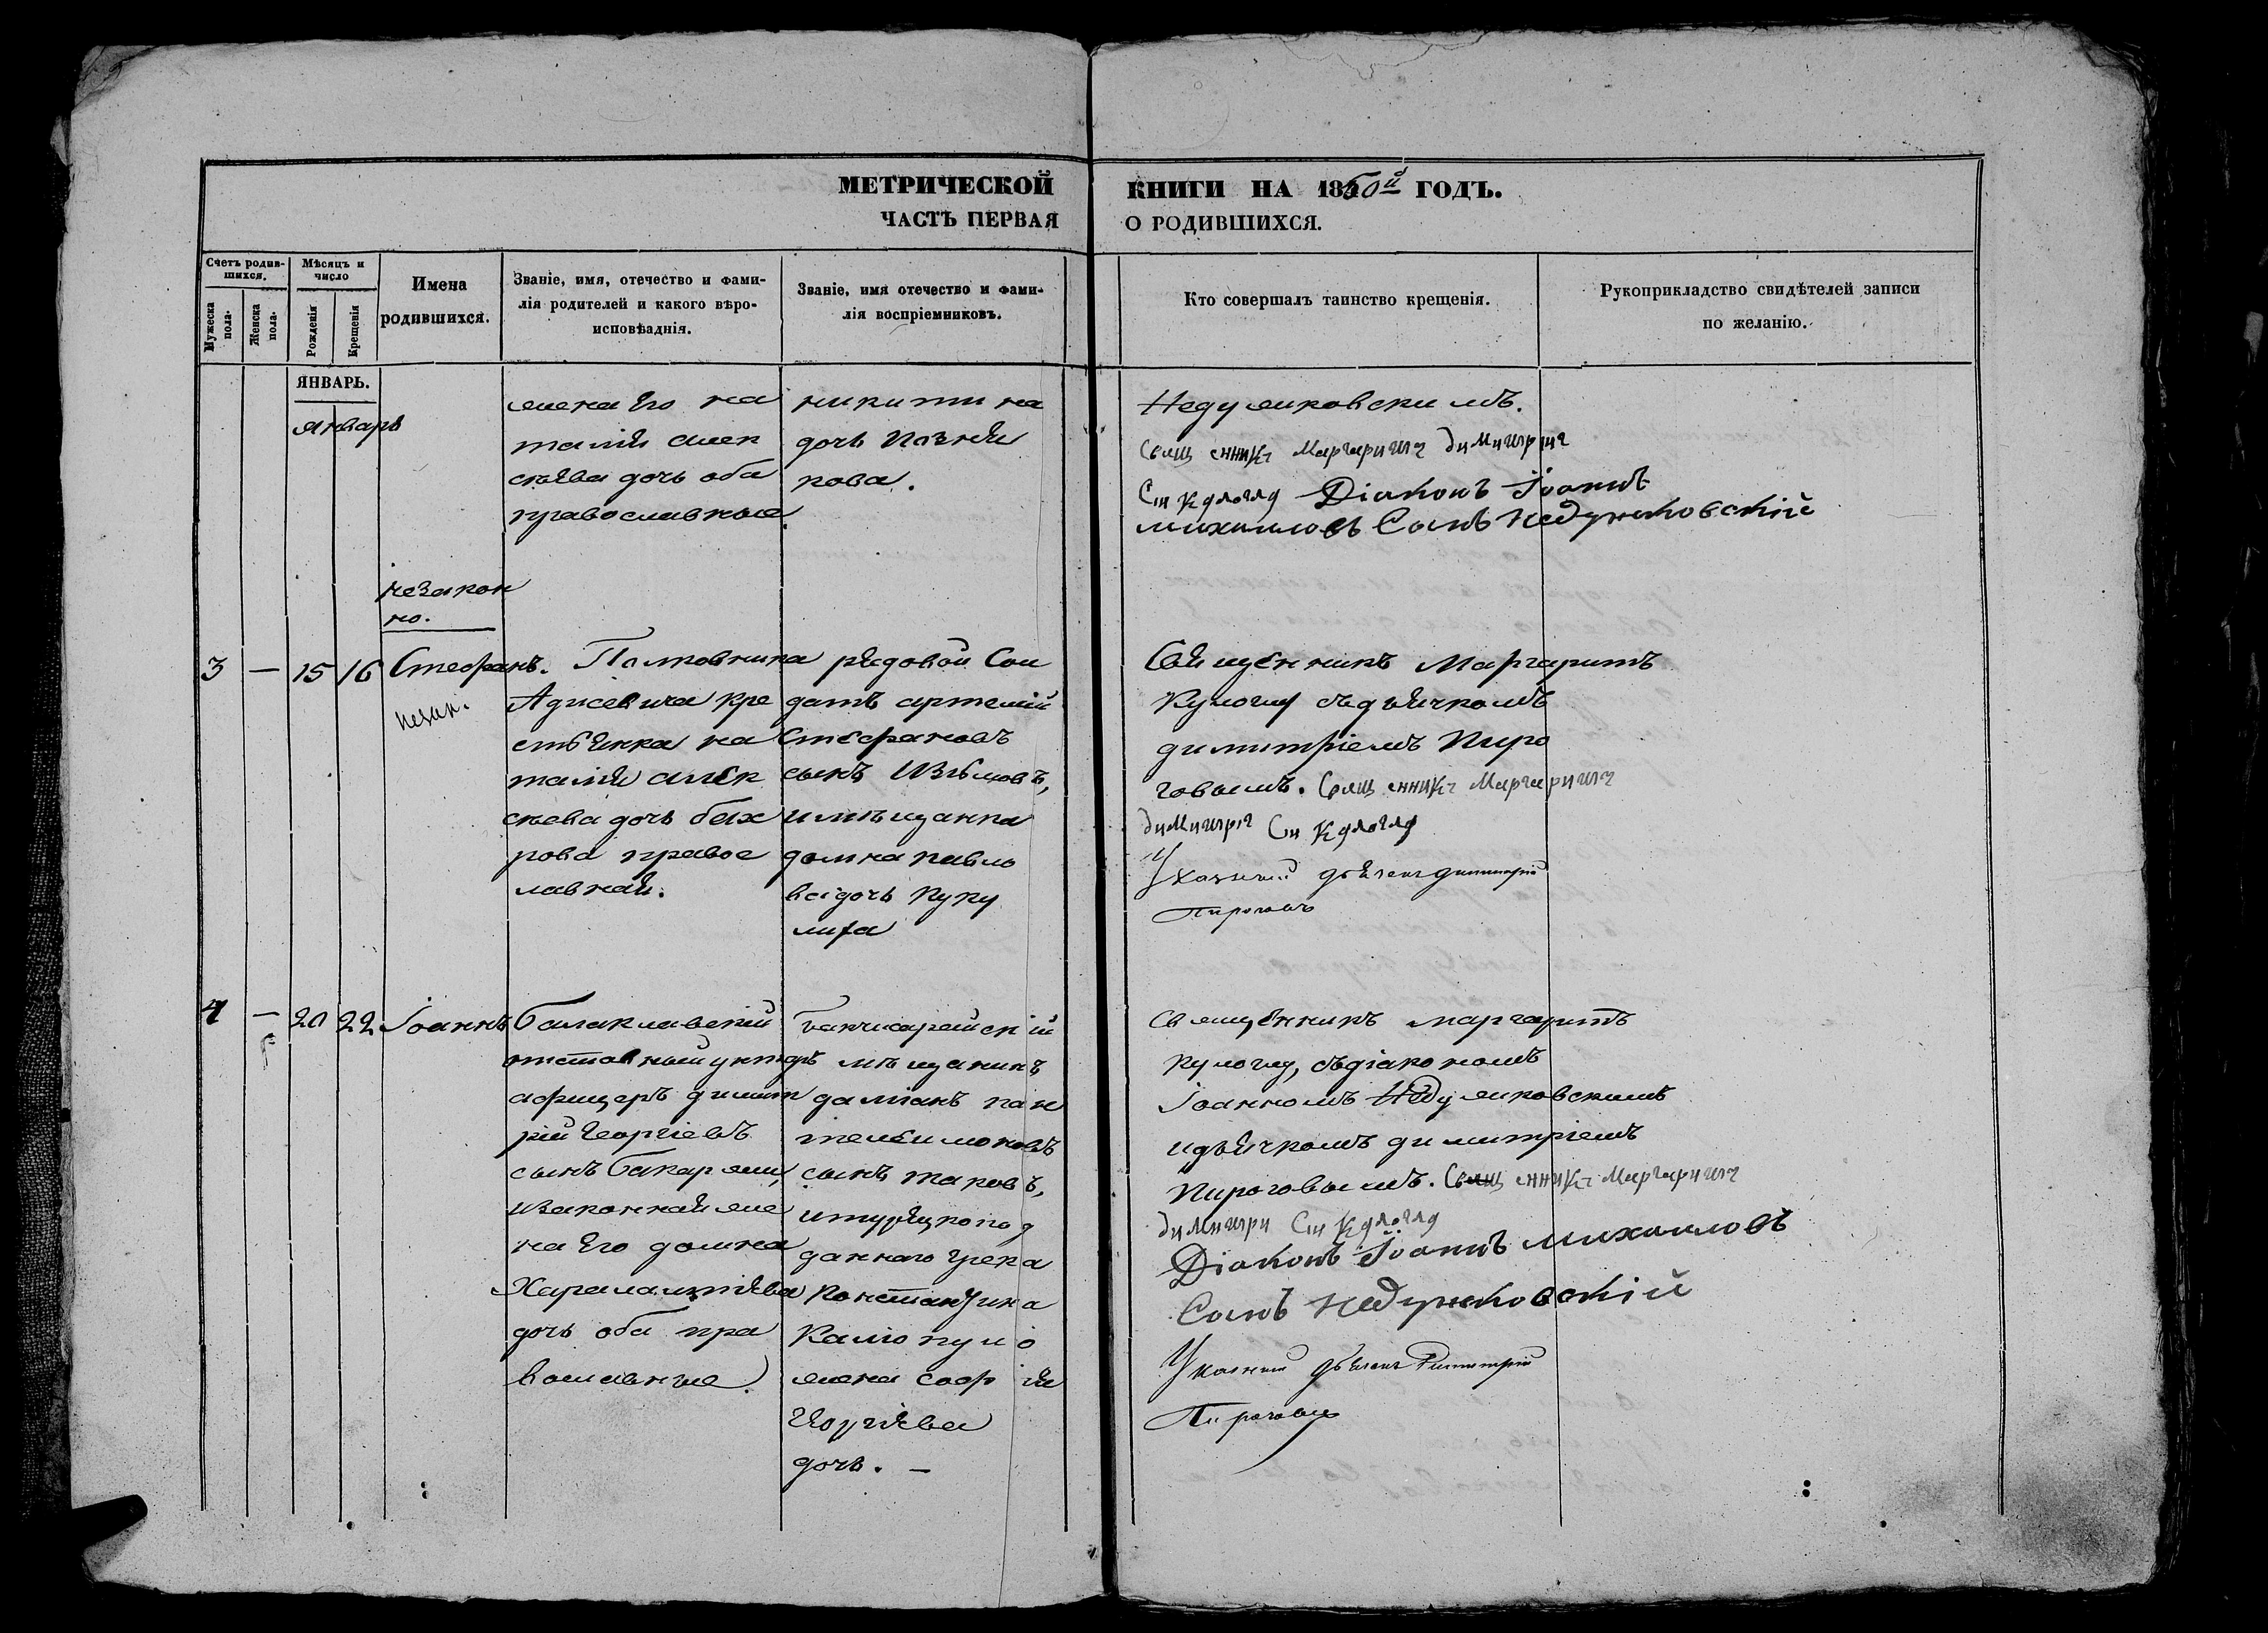 МЕТРИЧЕСКОЙ
ЧАСТЬ ПЕРВАЯ
КНИГИ НА 1850й ГОДЪ.
О РОДИВШИХСЯ.
Счетъ родив-
шихся.
Мужеска
пола.
Женска
пола.
Мѣсяцъ и
число
Рожденія
Крещенія
Имена
родившихся.
Званіе, имя, отечество и фами-
лія родителей и какого вѣро-
исповѣаднія.
Званіе, имя отечество и фами-
лія воспріемниковъ.
Кто совершалъ таинство крещенія.
Рукоприкладство свидѣтелей записи
по желанію.
ЯНВАРЬ.
январь
жена Его на
талія алек
сѣева дочь оба
православные.
никитина
дочь
кова.
Недумковскимъ.
Священникъ Маргаритъ Димитрія
Сн Кулоглу Діаконъ Іоаннъ
Михаиловъ Сынъ Недумковскій
незакон
но.
3 — 15 16
Стефанъ.
незак.
Полковника
кре
стьянка на
талія алек
сѣева дочь бах
рова правос
лавная.
рядовой Сол
датъ артемій
Стефановъ
сынъ
имѣщанка
домна павло
ва дочь куку
Священникъ Маргаритъ
Кулоглу съдьячкомъ
димитріемъ Пиро
говымъ. Священникъ Маргаритъ
Димитрія Сн Кулоглу
Указный дьячекъ димитрій
Пироговъ
4 — 20 22
Іоаннъ
Балаклавскій
отставный унтеръ
афицеръ димит
рій Георгіевъ
сынъ
изаконная же
на Его домна
Харалампіева
дочь оба пра
вославные.
Бакчисарайскій
мѣщанинъ
даміанъ пан
телеимоновъ
сынъ
итурецкопод
даннаго грека
Константина
жена софія
Георгіева
дочь. —
Священникъ маргаритъ
кулоглу, съдіакономъ
Іоанномъ Недумковскимъ
идьячкомъ димитріемъ
Пироговымъ. Священникъ Маргаритъ
Димитри Сн Кулоглу
Діаконъ Іоаннъ Михаиловъ
Сынъ Недумковскій
Указный дьячекъ Димитрій
Пироговъ